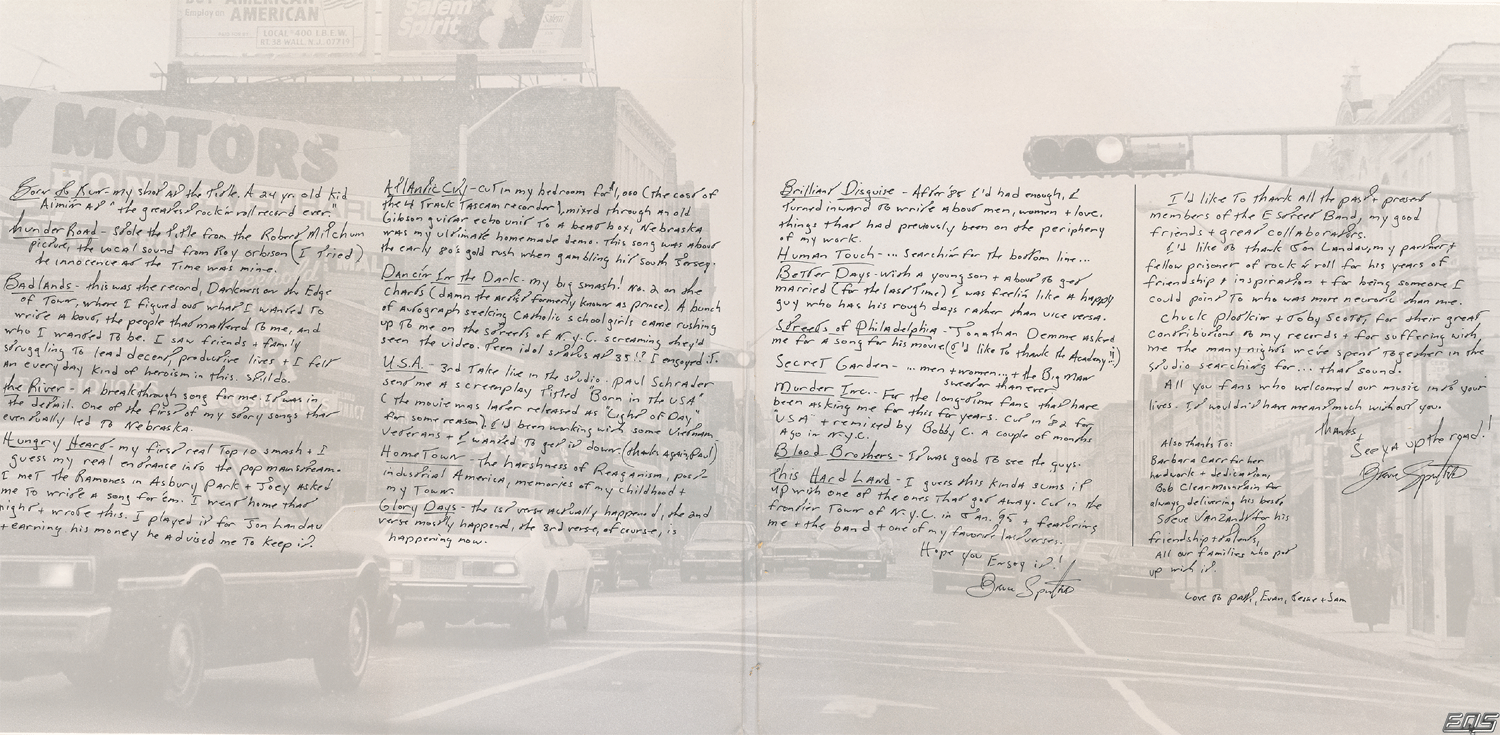 BUY AMERICAN
Employ an AMERICAN
LOCAL 400 I.B.E.W.
RT 38 WALL, N.J. 07719
Salem
Spirit
Salem
Y MOTORS
HON
MALL
Born to Run - my shot at the title. A 24 yr. old kid
Aimin' at "the greatest rock 'n roll record ever."
Thunder Road - Stole the title from the Robert Mitchum
picture, the vocal sound from Roy Orbison (I Tried)
the innocence at the Time was mine.
Badlands - this was the record, Darkness on the Edge
of Town, where I figured out what I wanted To
write about, the people that mattered To me, and
who I wanted To be. I saw friends + family
struggling to lead decent, productive lives + I felt
an everyday kind of heroism in this. Still do.
the River - A breakthrough song for me. It was in
the detail. One of the first of my story songs that
eventually led to Nebraska.
Hungry Heart - my first real Top 10 smash + I
guess my real entrance into the pop mainstream.
I met the Ramones in Asbury Park + Joey asked
me To write a song for 'em. I went home that
night + wrote this. I played it for Jon Landau
+ earning his money he advised me To keep it.
Atlantic City - cut in my bedroom for $1,000 (the cost of
the 4 Track Tascam recorder), mixed through an old
Gibson guitar echo unit To a beat box, Nebraska
was my ultimate homemade demo. This song was about
the early 80's gold rush when gambling hit south Jersey.
Dancin' In the Dark - my big smash! No. 2 on the
charts (damn the artist formerly known as prince). A bunch
of autograph seeking Catholic schoolgirls came rushing
up To me on the streets of N.Y.C. screaming they'd
seen the video. Teen idol status at 35!? I enjoyed it.
U.S.A. - 3rd Take live in the studio. Paul Schrader
sent me a screenplay Titled "Born in the USA"
(the movie was later released as "Light of Day,"
for some reason). I'd been working with some Vietnam
Veterans + I wanted To get it down (thanks again Paul)
HomeTown - The harshness of Reaganism, post-
industrial America, memories of my childhood +
my Town.
Glory Days - the 1st verse actually happened, the 2nd
verse mostly happened, the 3rd verse, of course, is
happening now.
Brilliant Disguise - After '85 I'd had enough, I
Turned inward To write About men, women + love.
things that had previously been on the periphery
of my work.
Human Touch - ... Searchin' for the bottom line...
Better Days - with a young son + About To get
married (for the last Time) I was feelin' like A happy
guy who has his rough days rather than vice versa.
Streets of Philadelphia - Jonathan Demme asked
me for a song for his movie (I'd like To thank the Academy!!)
Secret Garden - ... men + women... + the Big Man
sweeter than ever
Murder Inc. - For the long-time fans that have
been asking me for this for years. Cut in '82 for
"USA" + remixed by Bobby C. A couple of months
Ago in N.Y.C.
Blood Brothers - It was good To see the guys.
This Hard Land - I guess this kinda sums it
up with one of the ones That got away. Cut in the
frontier Town of N.Y.C. in Jan. 95 + featuring
me + the band + one of my favorite last verses.
Hope you Enjoy it!
Bruce Springsteen
I'd like To thank All the past + present
members of the E Street Band, my good
friends + great collaborators.
I'd like To thank Jon Landau, my partner +
fellow prisoner of rock 'n' roll for his years of
friendship + inspiration + for being someone I
could point To who was more neurotic than me.
Chuck Plotkin + Toby Scott, for their great
contributions To my records + for suffering with
me The many nights we've spent Together in the
studio searching for... that sound.
All you fans who welcomed our music into your
lives. It wouldn't have meant much without you.
Thanks +
See ya up the road!
Bruce Springsteen
Also Thanks To:
Barbara Carr for her
hardwork + dedication,
Bob Clearmountain for
always delivering his best,
Steve Van Zandt for his
friendship + talents,
All our families who put
up with it.
Love To Patti, Evan, Jessie + Sam
EAS